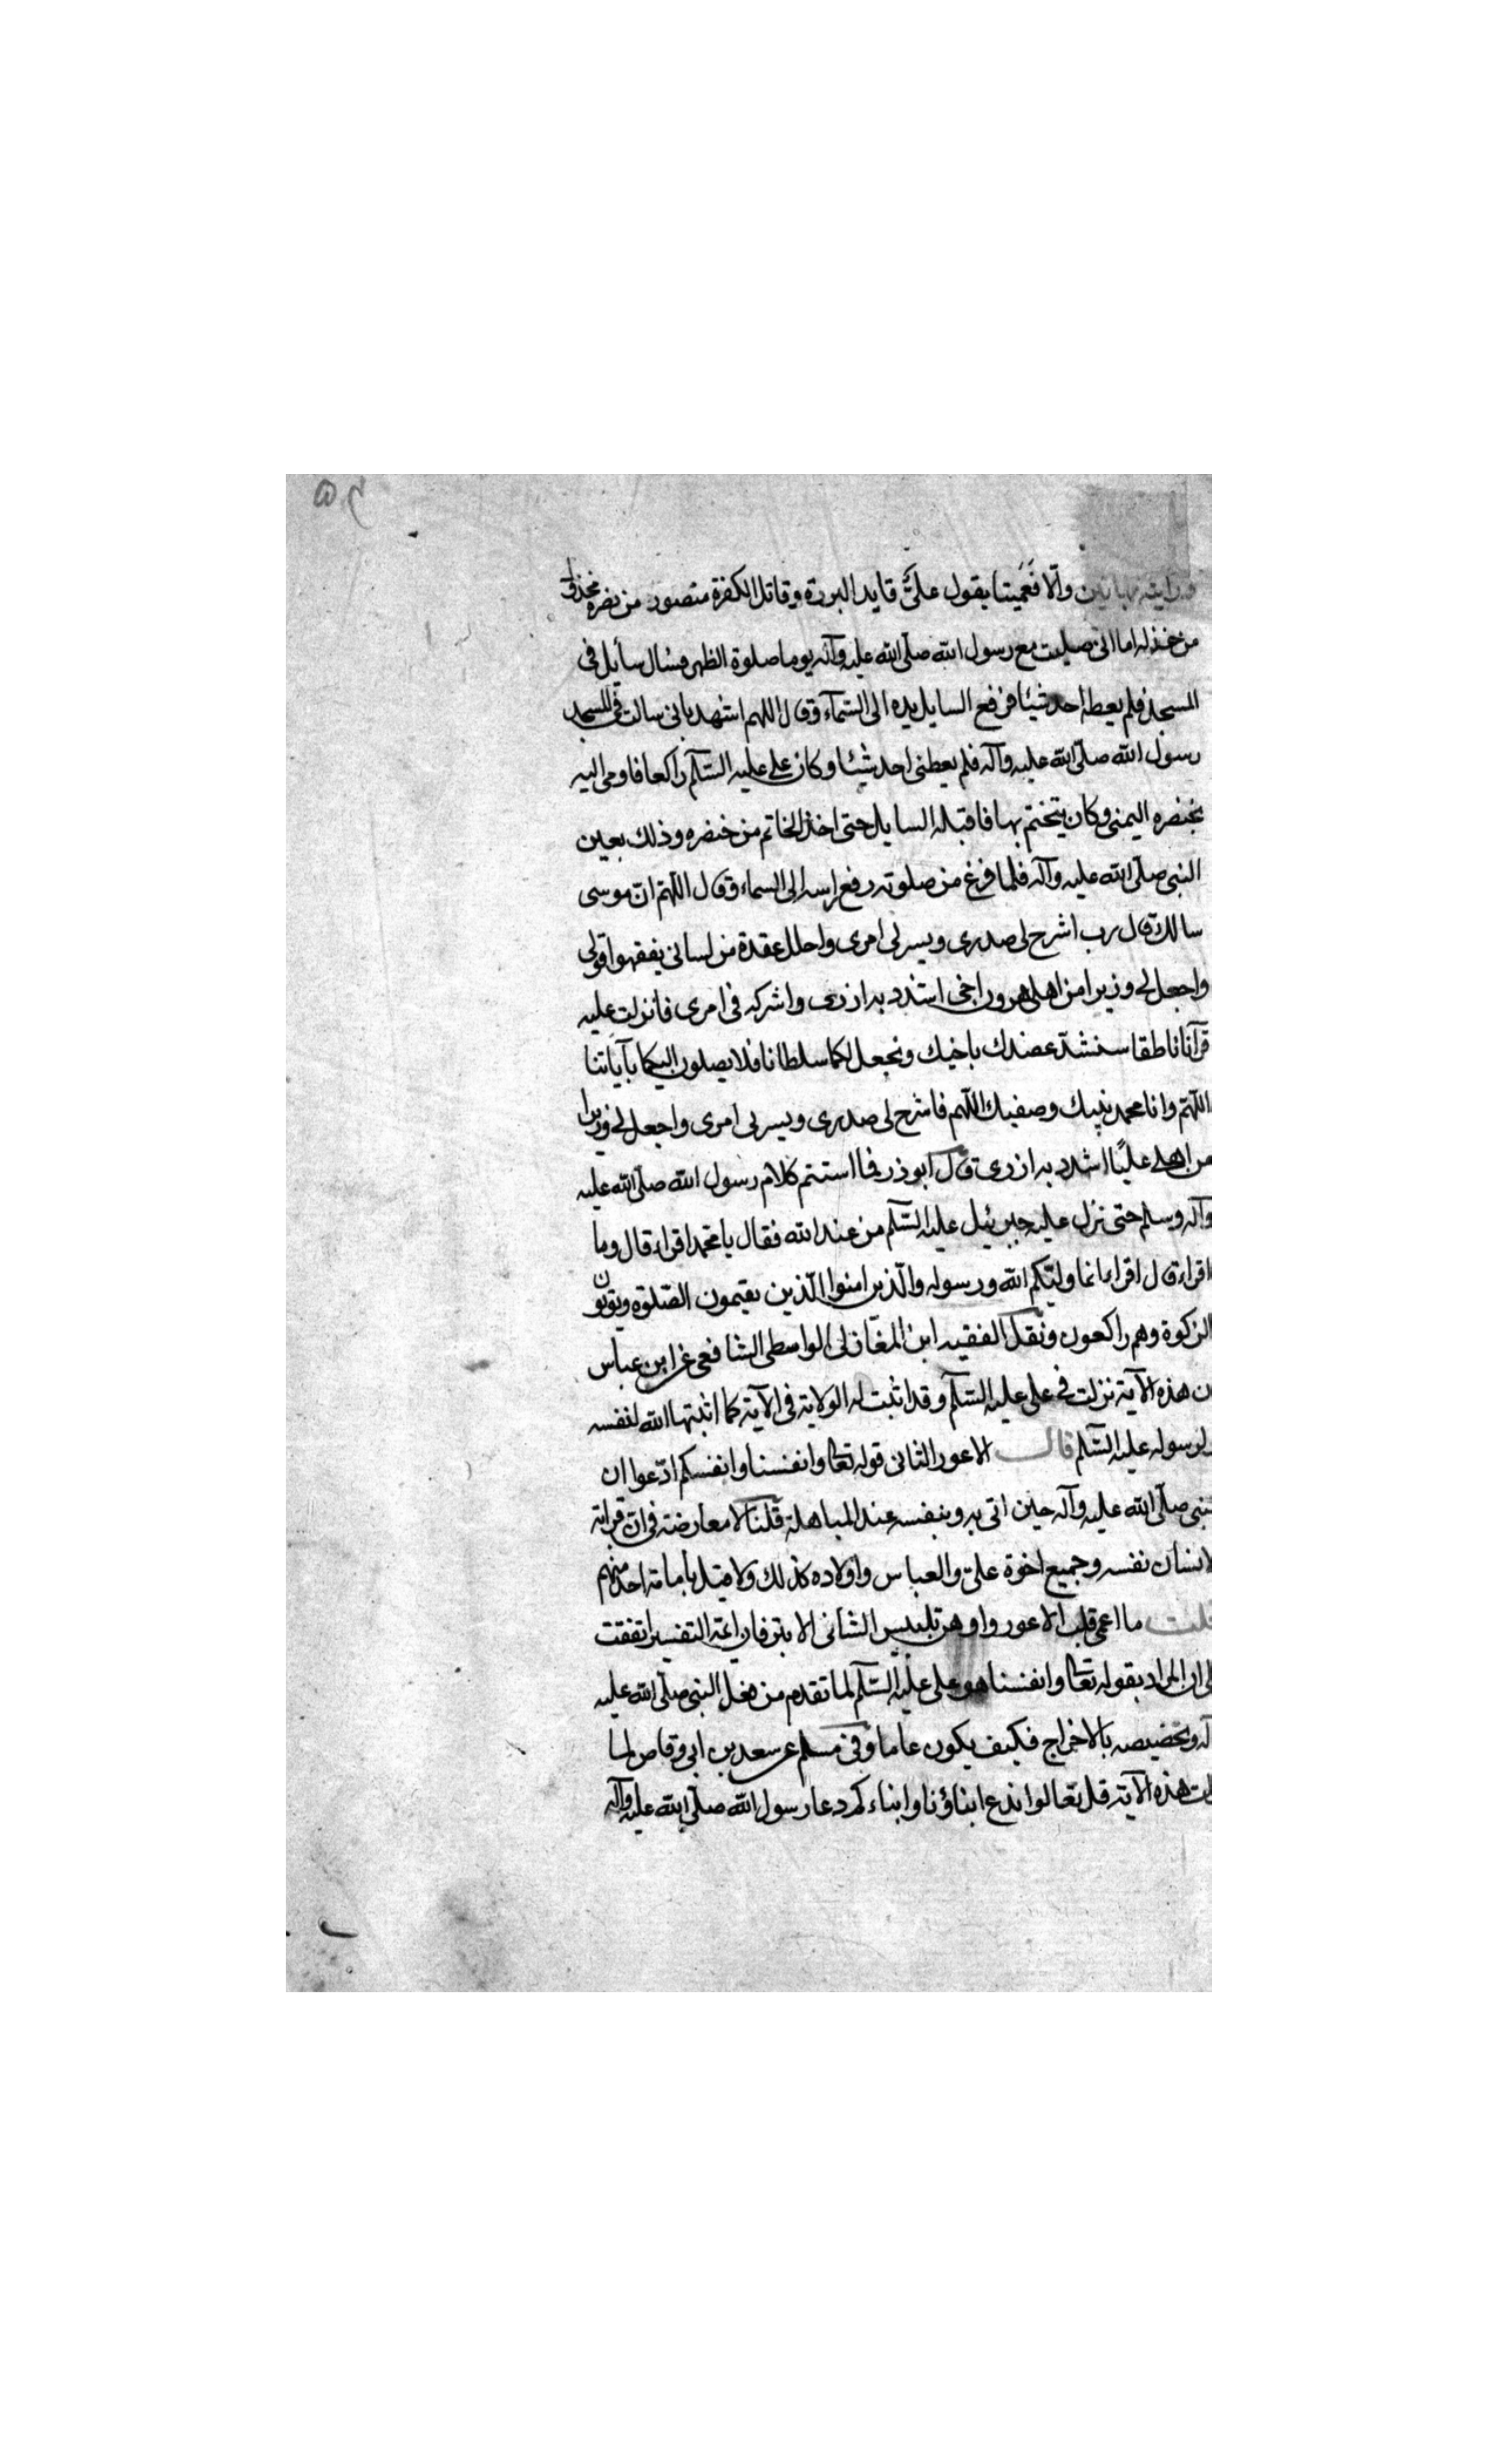 ورايته بهاتين والا فعَميتا يقول علىّ قايد البررة وقاتل الكفرة منصور من نصره مخذول
من خذله اما انى صليت مع رسول الله صلّى الله عليه وآله يوما صلوة الظهر فسال سايل فى
المسجد فلم يعطه احد شيئا فرفع السايل يده الى السّمآء وقال اللهم اشهد بانى سالت فى المسجد
رسول الله صلّى الله عليه وآله فلم يعطنى احد شيئا وكان على عليه السّلم راكعا فاومى اليه
بخنصره اليمنى وكان يتختم بها فاقبل السايل حتى اخذ الخاتم من خنصره وذلك بعين
النبى صلّى الله عليه وآله فلما فرغ من صلوته رفع راسه الى السماء وقال اللّهمّ انّ موسى
سالك قال رب اشرح لى صدرى ويسر لى امرى واحلل عقدة من لسانى يفقهوا قولى
واجعل لى وزيرا من اهلى هرون اخى اشدد به ازرى واشركه فى امرى فانزلت عليه
قرآنا ناطقا سنشدّ عضدك باخيك ونجعل لكما سلطانا فلا يصلون اليكما بآياتنا
اللّهمّ وانا محمد نبيك وصفيك اللّهم فاشرح لى صدرى ويسر لى امرى واجعل لى وزيرا
من اهلى عليًا اشدد به ازرى قال ابو ذر فما استتم كلام رسول الله صلّى الله عليه
وآله وسلم حتى نزل عليه جبرئيل عليه السّلم من عند الله فقال يا محمد اقراء قال وما
اقراء قال اقراء انما وليّكم الله ورسوله والّذين امنوا الّذين يقيمون الصّلوة ويؤتون
الزكوة وهم راكعون ونقل الفقيه ابن المغازلى الواسطى الشافعى عن ابن عباس
ن هذه الآية نزلت فى على عليه السّلم وقد اثبت له الولاية فى الآية كما اثبتها الله لنفسه
ولرسوله عليه السّلم قال الاعور الثانى قوله تعالى وانفسنا وانفسكم ادّعوا ان
لنبى صلّى الله عليه وآله حين اتى به وبنفسه عند المباهلة قلنا لا معارضة فى انّ قرابة
لانسان نفسه وجميع اخوة علىّ والعباس واولاده كذلك ولا قيل بامامة احد منهم
قلت ما اعمى قلب الاعور واوهن تلبيس الشانى الابتر فان ائمة التفسير اتفقت
لى ان المراد بقوله تعالى وانفسنا هو على عليه السّلم لما تقدم من فعل النبى صلّى الله عليه
آله وتخصيصه بالاخراج فكيف يكون عاما وفى مسلم عن سعد بن ابى وقاص لما
لت هذه الآية قل تعالوا ندع ابناؤنا وابناءكم دعا رسول الله صلّى الله عليه وآله